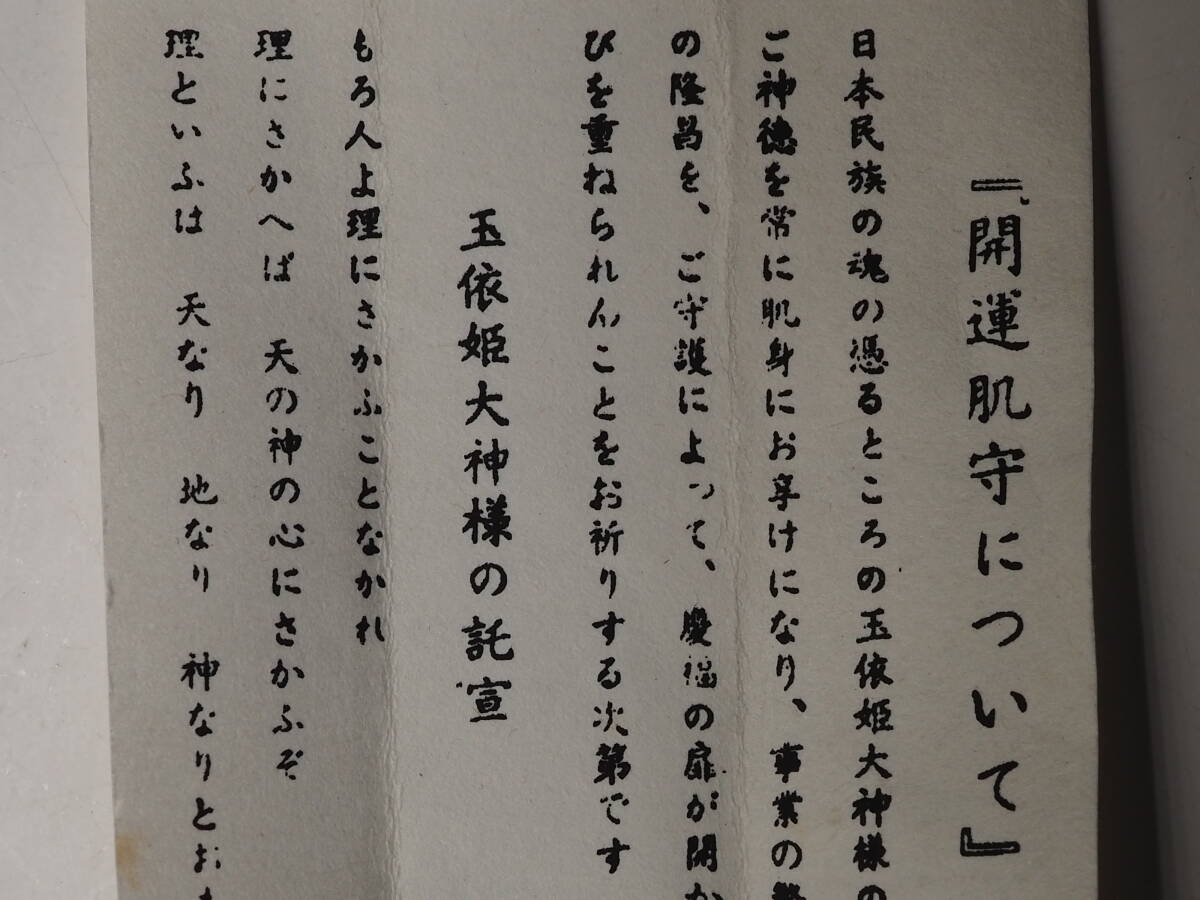 『開運肌守について』
日本民族の魂の憑るところの玉依姫大神様の
ご神徳を常に肌身にお享けになり、事業の繁
の隆昌を、ご守護によって、慶福の扉が開か
びを重ねられんことをお祈りする次第です
玉依姫大神様の託宣
もろ人よ理にさかふことなかれ
理にさかへば 天の神の心にさかふぞ
理といふは 天なり 地なり 神なりとお